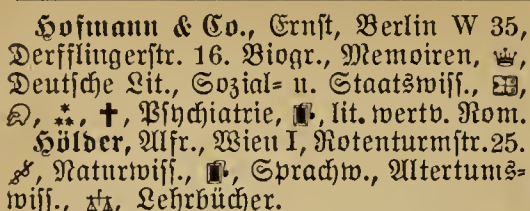 Hofmann & Co., Ernst, Berlin W 35,
Derfflingerstr. 16. Biogr., Memoiren,
Deutsche Lit., Sozial= u. Staatswiss.,
†, Psychiatrie, lit. wertv. Rom.
Hölder, Alfr., Wien I, Rotenturmstr. 25.
Naturwiss., Sprachw., Altertums=
wiss., Lehrbücher.